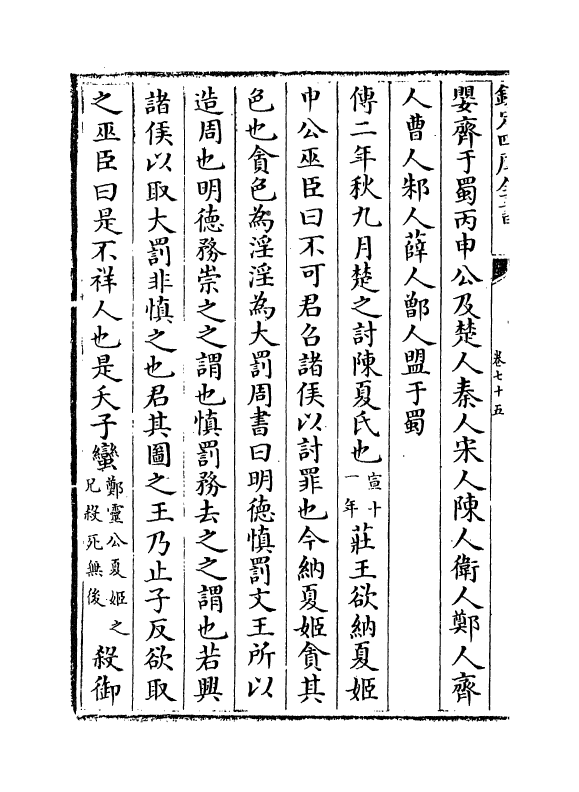 欽定四庫全書
卷七十五
嬰齊于蜀丙申公及楚人秦人宋人陳人衛人鄭人齊
人曹人邾人薛人鄫人盟于蜀
傳二年秋九月楚之討陳夏氏也宣十一年莊王欲納夏姬
申公巫臣曰不可君召諸侯以討罪也今納夏姬貪其
色也貪色為淫淫為大罰周書曰明徳慎罰文王所以
造周也明徳務崇之之謂也慎罰務去之之謂也若興
諸侯以取大罰非慎之也君其圖之王乃止子反欲取
之巫臣曰是不祥人也是夭子蠻鄭靈公夏姬之兄殺死無後殺御